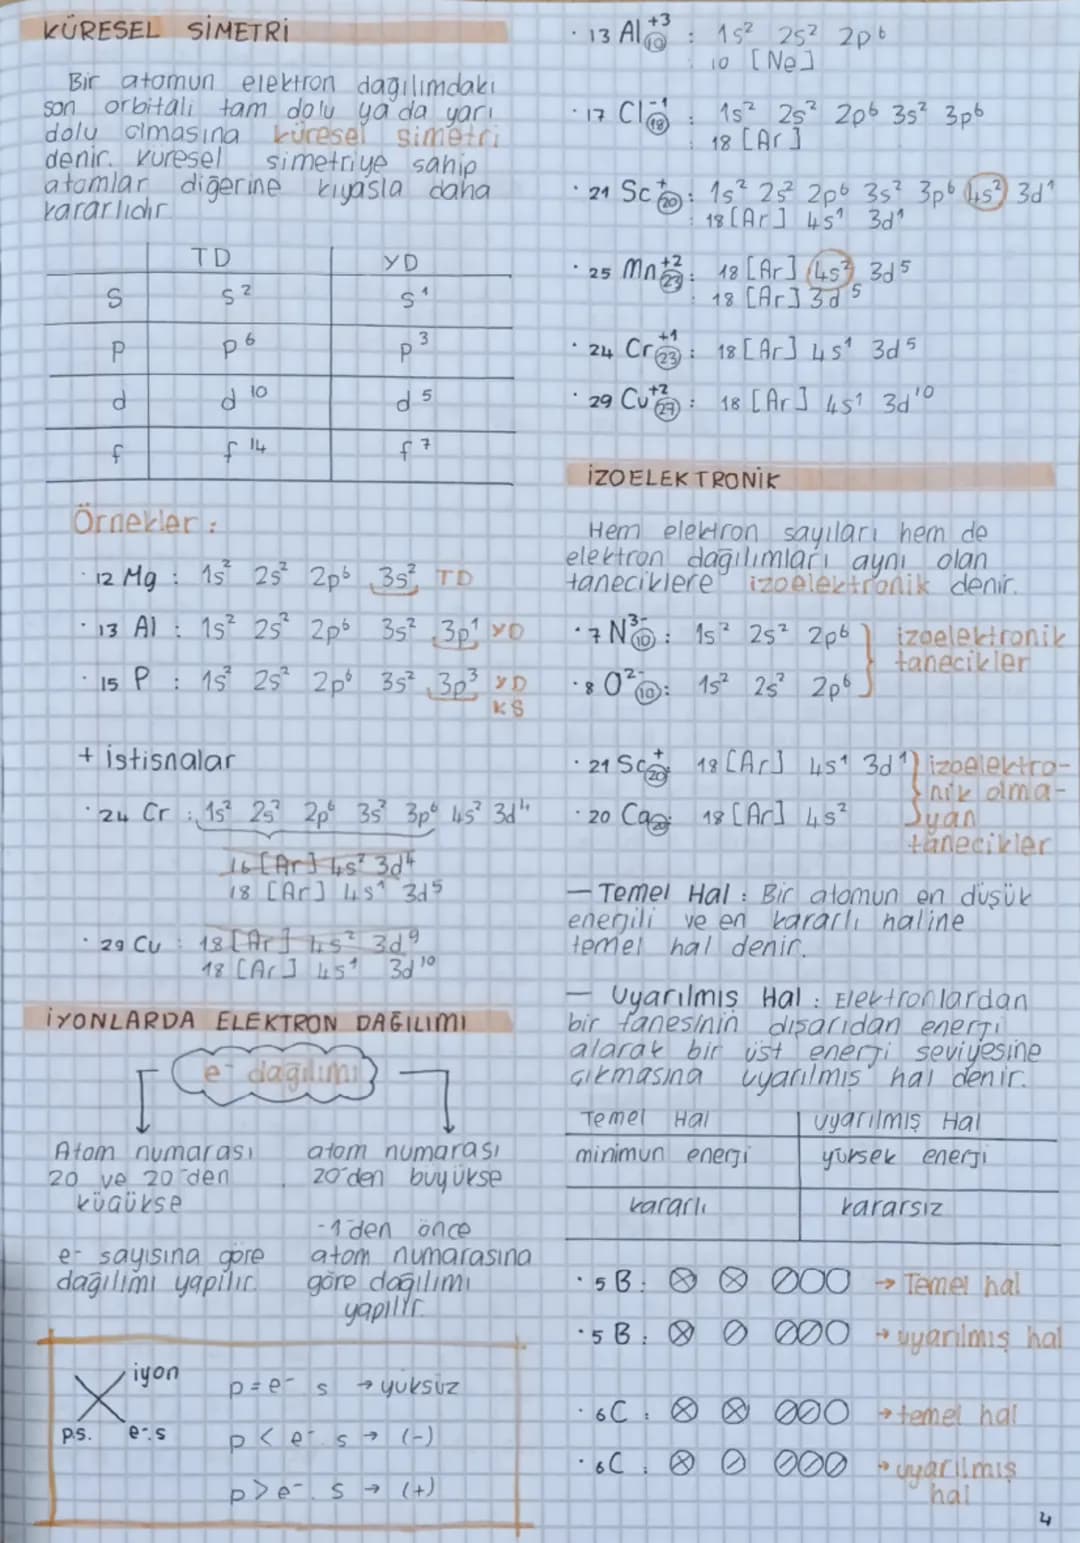 KÜRESEL SİMETRİ
Bir atomun elektron dağılımdaki
son orbitali tam dolu ya da yarı
dolu olmasına küresel simetri
denir. küresel simetriye sahip
atomlar diğerine kıyasla daha
kararlıdır
TD YD
S s² s¹
p p⁶ p³
d d¹⁰ d⁵
f f¹⁴ f⁷
Örnekler :
· 12 Mg : 1s² 2s² 2p⁶ 3s² TD
· 13 Al : 1s² 2s² 2p⁶ 3s² 3p¹ YD
· 15 P : 1s² 2s² 2p⁶ 3s² 3p³ YD
KS
+ istisnalar
· 24 Cr : 1s² 2s² 2p⁶ 3s² 3p⁶ 4s² 3d⁴
16 [Ar] 4s² 3d⁴
18 [Ar] 4s¹ 3d⁵
· 29 Cu : 18 [Ar] 4s² 3d⁹
18 [Ar] 4s¹ 3d¹⁰
İYONLARDA ELEKTRON DAĞILIMI
e⁻ dağılımı
Atom numarası
20 ve 20'den
küçükse
e- sayısına göre
dağılımı yapılır.
atom numarası
20'den büyükse
-1'den önce
atom numarasına
göre dağılımı
yapılır.
iyon
p.s. e⁻.s
p = e⁻ s → yüksüz
p < e⁻. s → (-)
p > e⁻. s → (+)
· 13 Al⁺³ 10 : 1s² 2s² 2p⁶
10 [Ne]
· 17 Cl⁻¹ 18 : 1s² 2s² 2p⁶ 3s² 3p⁶
: 18 [Ar]
· 21 Sc⁺ 20 : 1s² 2s² 2p⁶ 3s² 3p⁶ 4s² 3d¹
: 18 [Ar] 4s¹ 3d¹
· 25 Mn⁺² 23 : 18 [Ar] 4s² 3d⁵
: 18 [Ar] 3d⁵
· 24 Cr⁺¹ 23 : 18 [Ar] 4s¹ 3d⁵
· 29 Cu⁺² 27 : 18 [Ar] 4s¹ 3d¹⁰
İZOELEKTRONİK
Hem elektron sayıları hem de
elektron dağılımları aynı olan
taneciklere izoelektronik denir.
· 7 N³⁻ 10 : 1s² 2s² 2p⁶
· 8 O²⁻ 10 : 1s² 2s² 2p⁶
izoelektronik
tanecikler
· 21 Sc⁺ 20 : 18 [Ar] 4s¹ 3d¹
· 20 Ca 20 : 18 [Ar] 4s²
izoelektro-
nik olma-
yan
tanecikler
— Temel Hal : Bir atomun en düşük
enerjili ve en kararlı haline
temel hal denir.
— Uyarılmış Hal : Elektronlardan
bir tanesinin dışarıdan enerji
alarak bir üst enerji seviyesine
çıkmasına uyarılmış hal denir.
Temel Hal uyarılmış Hal
minimun enerji yüksek enerji
kararlı kararsız
· 5 B : → Temel hal
· 5 B : → uyarılmış hal
· 6C : → temel hal
· 6C : → uyarılmış
hal
4